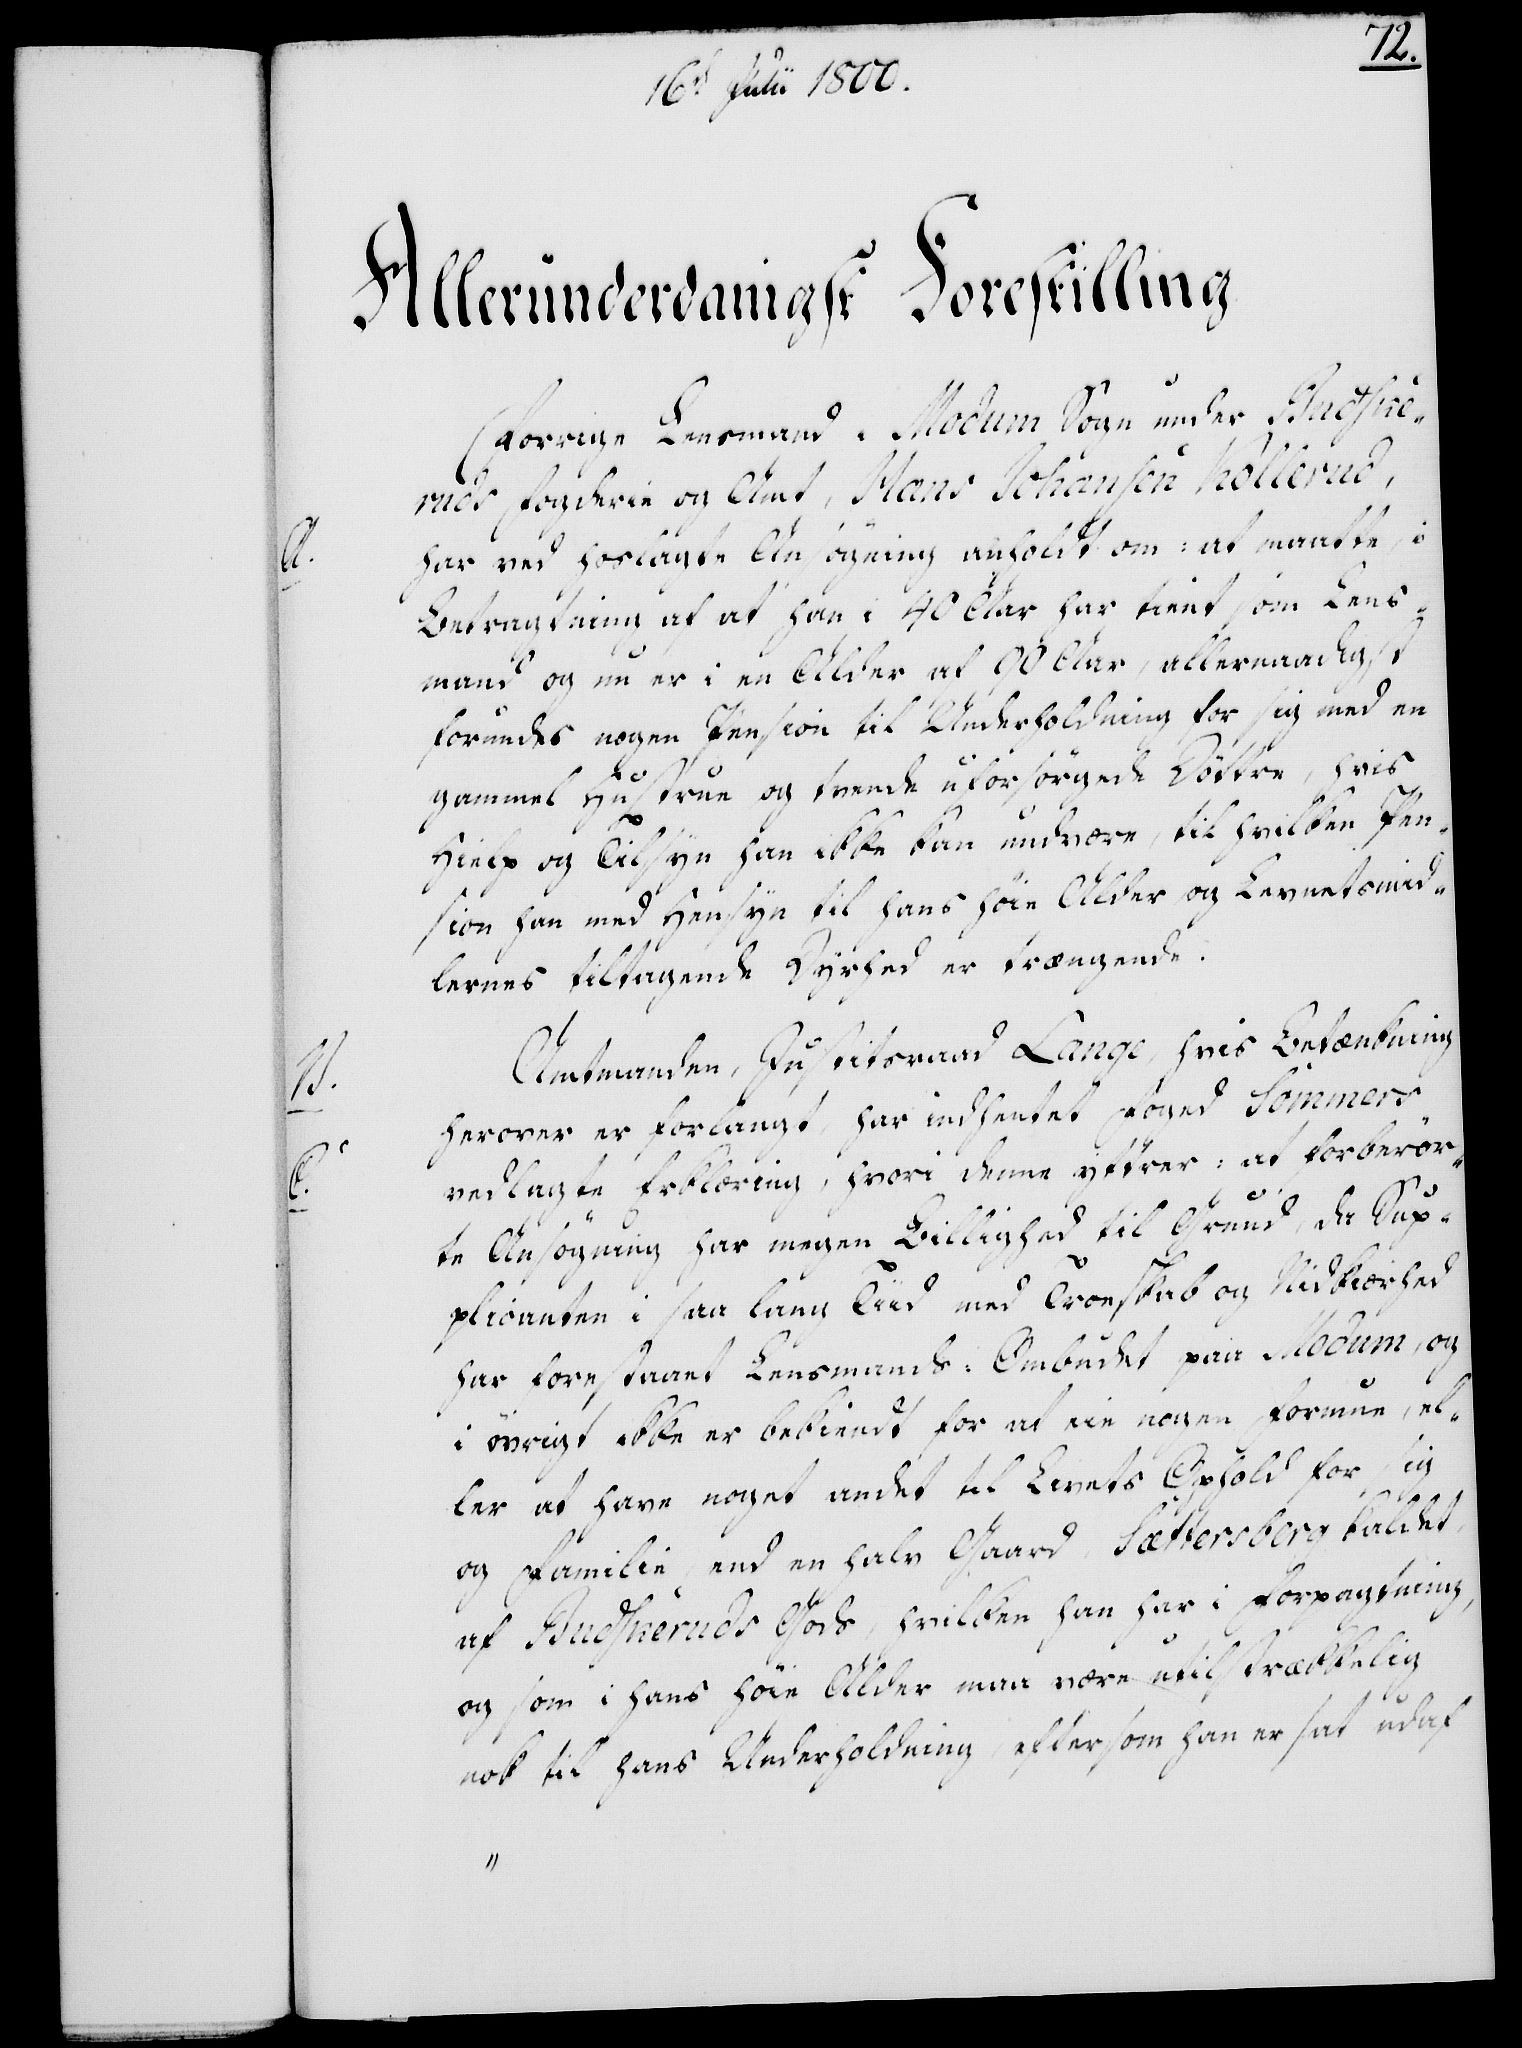 72.
16d Julii 1800.
Allerunderdanigst Forestilling
Forrige Lensmand i Modum Sogn under Budskie-
ruds Fogderie og Amt, Hans Johansen Kollerud,
A.
har ved hoslagte Ansøgning anholdt om: at maatte, i
Betragtning af at han i 40 Aar har tient som Lens-
mand og nu er i en Alder af 90 Aar, allernaadigst
forundes nogen Pension til Underholdning for sig med en
gammel Hustrue og tvende uforsörgede Döttre, hvis
Hielp og Tilsyn han ikke kan undvære, til hvilken Pen-
sion han med Hensyn til hans höie Alder og Levnetsmid-
lernes tiltagende Dyrhed er trængende.
B.
Amtmanden, Justitsraad Lange, hvis Betænkning
herover er forlangt, har indhentet Foged Sommers
C.
vedlagte Erklæring, hvori denne yttrer: at forberör-
te Ansögning har megen Billighed til Grund, da Sup-
plicanten i saa lang Tiid med Troeskab og Nidkiærhed
har forestaaet Lensmands-Ombudet paa Modum, og
i övrigt ikke er bekiendt for at eie nogen Formue, el-
ler at have noget andet til Livets Ophold for sig
og Familie, end en halv Gaard, Sættersberg kaldet,
af Budskieruds Gods, hvilken han har i Forpagtning,
og som i hans höie Alder maa være utilstrækkelig
nok til hans Underholdning, eftersom han er sat udaf
"